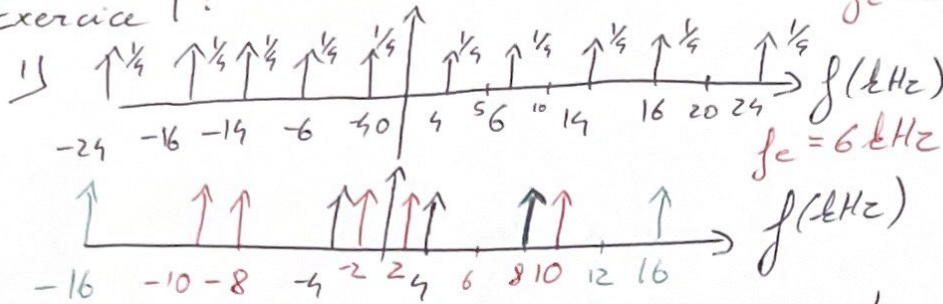 Exercice 1:
1) 1/4 1/4 1/4 1/4 1/4 1/4 1/4 1/4 1/4 1/4 f(kHz)
-24 -16 -14 -6 -4 0 4 5 6 10 14 16 20 24
fe = 6 kHz
f(kHz)
-16 -10 -8 -4 -2 2 4 6 8 10 12 16